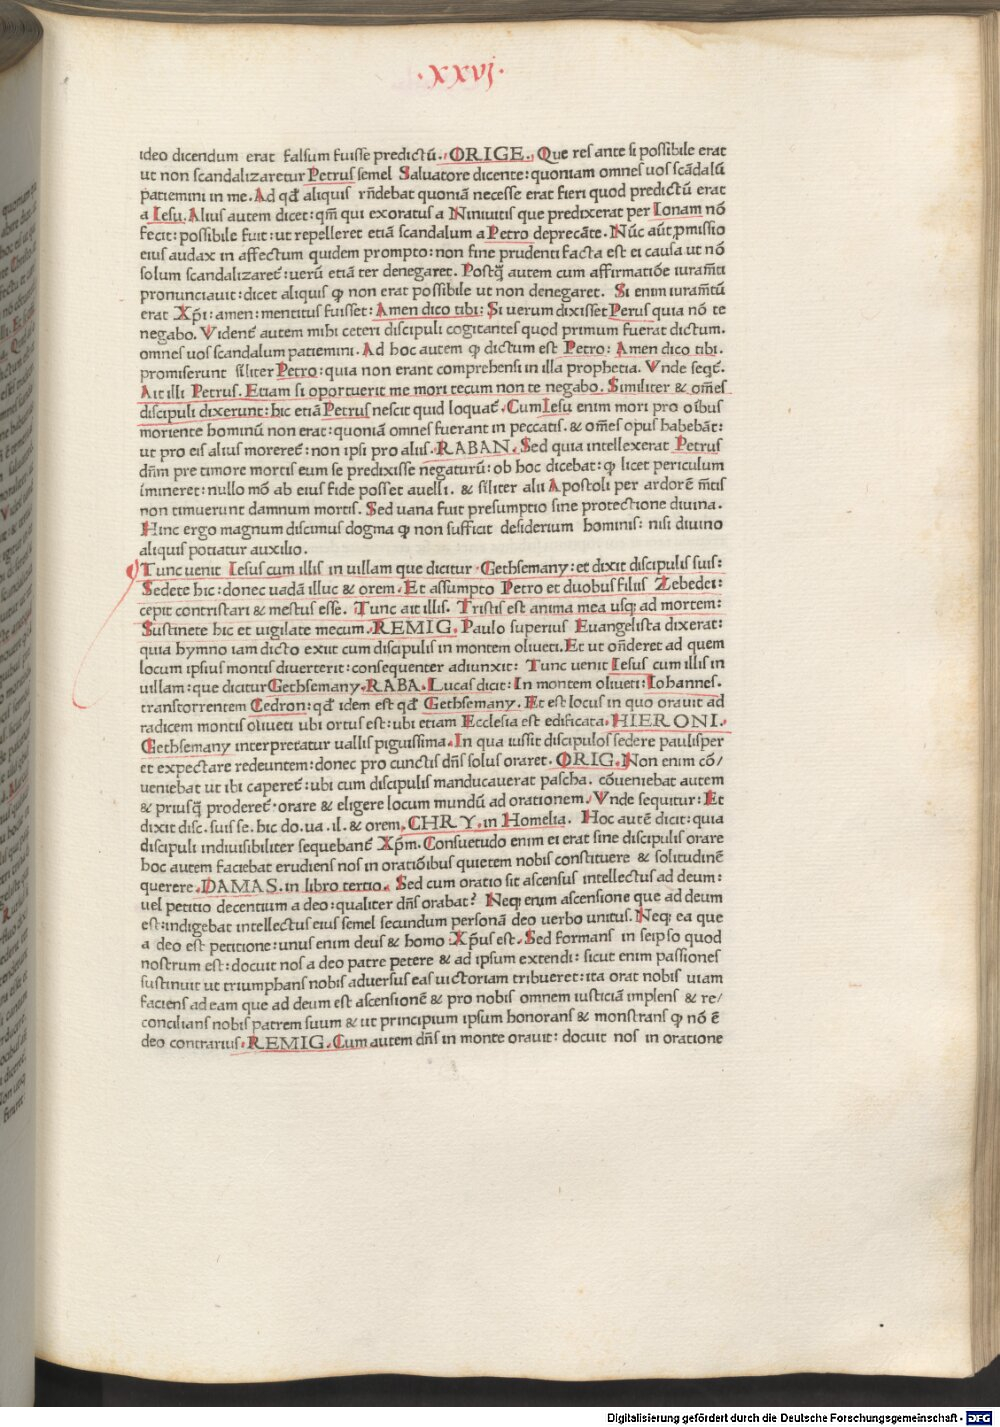 ·xxvj·
ideo dicendum erat falsum fuisse predictū. ORIGE. Que res ante si possibile erat
ut non scandalizaretur Petrus semel Saluatore dicente: quoniam omnes uos scādalū
patiemini in me. Ad qđ aliquis rñdebat quoniā necesse erat fieri quod predictū erat
a Iesu. Alius autem dicet: qm̄ qui exoratus a Niniuitis que predixerat per Ionam nō
fecit: possibile fuit: ut repelleret etiā scandalum a Petro deprecāte. Nūc aūt p̱missio
eius audax in affectum quidem prompto: non sine prudenti facta est ei causa ut nō
solum scandalizaret̃: uerū etiā ter denegaret. Postq̄ autem cum affirmatiōe iuram̄ti
pronunciauit: dicet aliquis ꝙ non erat possibile ut non denegaret. Si enim iuramtū
erat Xp̄i: amen: mentitus fuisset: Amen dico tibi: Si uerum dixisset Perus quia nō te
negabo. Vident̃ autem mihi ceteri discipuli cogitantes quod primum fuerat dictum.
omnes uos scandalum patiemini. Ad hoc autem ꝙ dictum est Petro: Amen dico tibi.
promiserunt sil̄iter Petro: quia non erant comprehensi in illa prophetia. Vnde seqt̃.
Ait illi Petrus. Etiam si oportuerit me mori tecum non te negabo. Similiter & om̄es
discipuli dixerunt: hic etiā Petrus nescit quid loquat̃. Cum Iesu enim mori pro oībus
moriente hominū non erat: quoniā omnes fuerant in peccatis. & om̄es opus habebāt:
ut pro eis alius moreret̃: non ipsi pro aliis. RABAN. Sed quia intellexerat Petrus
dn̄m pre timore mortis eum se predixisse negaturū: ob hoc dicebat: ꝙ licet periculum
īmineret: nullo mō ab eius fide posset auelli. & sil̄iter alii Apostoli per ardorē m̄tis
non timuerunt damnum mortis. Sed uana fuit presumptio sine protectione diuina.
Hinc ergo magnum discimus dogma ꝙ non sufficit desiderium hominis: nisi diuino
aliquis potiatur auxilio.
Tunc uenit Iesus cum illis in uillam que dicitur Gethsemany: et dixit discipulis suis:
Sedete hic: donec uadā illuc & orem. Et assumpto Petro et duobus filiis Zebedei:
cepit contristari & mestus esse. Tunc ait illis. Tristis est anima mea usq; ad mortem:
Sustinete hic et uigilate mecum. REMIG. Paulo superius Euangelista dixerat:
quia hymno iam dicto exiit cum discipulis in montem oliueti. Et ut on̄deret ad quem
locum ipsius montis diuerterit: consequenter adiunxit: Tunc uenit Iesus cum illis in
uillam: que dicitur Gethsemany. RABA. Lucas dicit: In montem oliueti: Iohannes.
transtorrentem Cedron: qđ idem est qđ Gethsemany. Et est locus in quo orauit ad
radicem montis oliueti ubi ortus est: ubi etiam Ecclesia est edificata. HIERONI.
Gethsemany interpretatur uallis piguissima. In qua iussit discipulos sedere paulisper
et expectare redeuntem: donec pro cunctis dn̄s solus oraret. ORIG. Non enim cō/
ueniebat ut ibi caperet̃: ubi cum discipulis manducauerat pascha. cōueniebat autem
& priusq̄ proderet̃ orare & eligere locum mundū ad orationem. Vnde sequitur: Et
dixit disc. suis se. hic do. ua. il. & orem. CHRY. in Homelia. Hoc autē dicit: quia
discipuli indiuisibiliter sequebant̃ Xp̄m. Consuetudo enim ei erat sine discipulis orare
hoc autem faciebat erudiens nos in oratiōibus quietem nobis constituere & solitudinē
querere. DAMAS. in libro tertio. Sed cum oratio sit ascensus intellectus ad deum:
uel petitio decentium a deo: qualiter dn̄s orabat? Neq; enim ascensione que ad deum
est: indigebat intellectus eius semel secundum personā deo uerbo unitus. Neq; ea que
a deo est petitione: unus enim deus & homo Xp̄us est. Sed formans in seipso quod
nostrum est: docuit nos a deo patre petere & ad ipsum extendi: sicut enim passiones
sustinuit ut triumphans nobis aduersus eas uictoriam tribueret: ita orat nobis uiam
faciens ad eam que ad deum est ascensionē & pro nobis omnem iusticiā implens & re/
concilians nobis patrem suum & ut principium ipsum honorans & monstrans ꝙ nō ē
deo contrarius. REMIG. Cum autem dn̄s in monte orauit: docuit nos in oratione
Digitalisierung gefördert durch die Deutsche Forschungsgemeinschaft - DFG